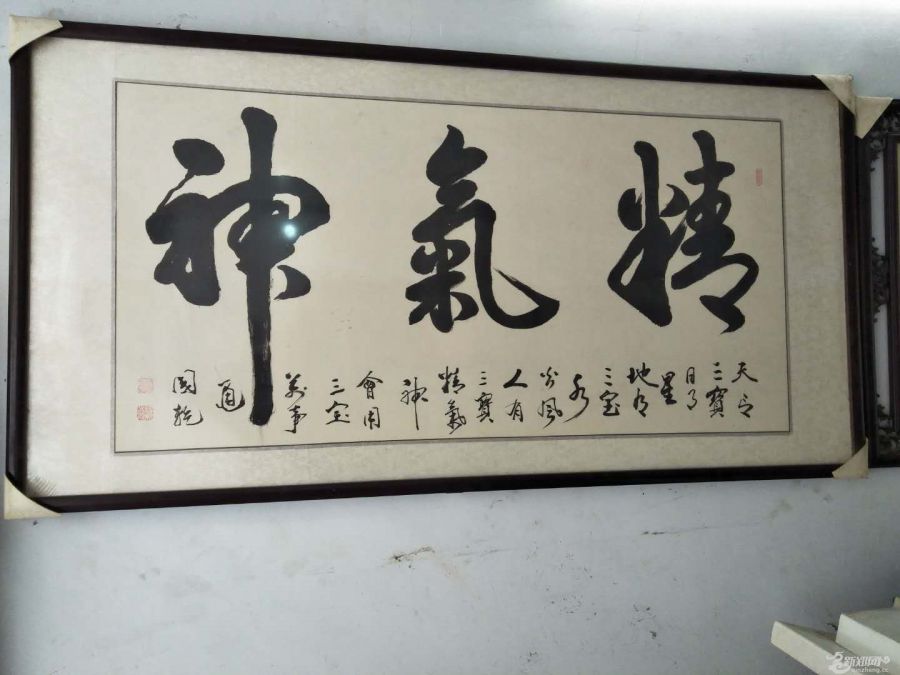 精氣神
天有
三寶
日月
星
地有
三宝
水
火風
人有
三寶
精氣
神
會用
三宝
萬事
通
新郑网